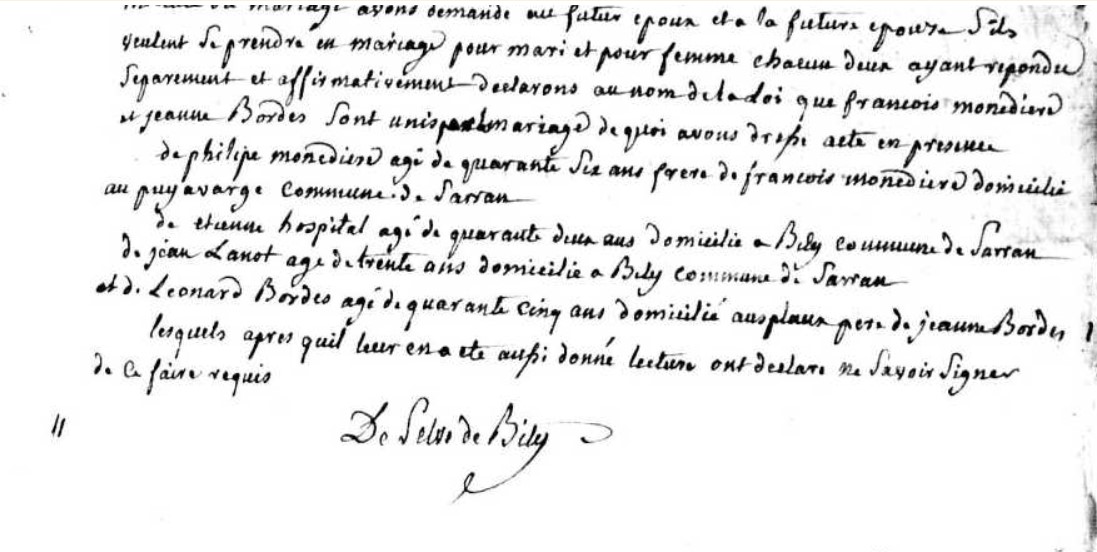 du mariage avons demandé au futur epoux et a la future epouze S'ils
veulent se prendre en mariage pour mari et pour femme chacun deux ayant repondu
separement et affirmativement declarons au nom de la Loi que francois monediere
et jeanne Bordes sont unis mariage de quoi avons dressé acte en presence
de philipe monediere agé de quarante Six ans frere de francois monediere domicilié
au puyavarge commune de Sarran
de etienne hospital agé de quarante deux ans domicilie a Bity commune de Sarran
de jean Lanot age de trente ans domicilie a Bity commune de Sarran
et de Leonard Bordes agé de quarante cinq ans domicilié aus plaux pere de jeanne Bordes
lesquels apres quil leur en a ete aussi donné lecture ont declare ne Savoir Signer
de ce faire requis
De Selve de Bity